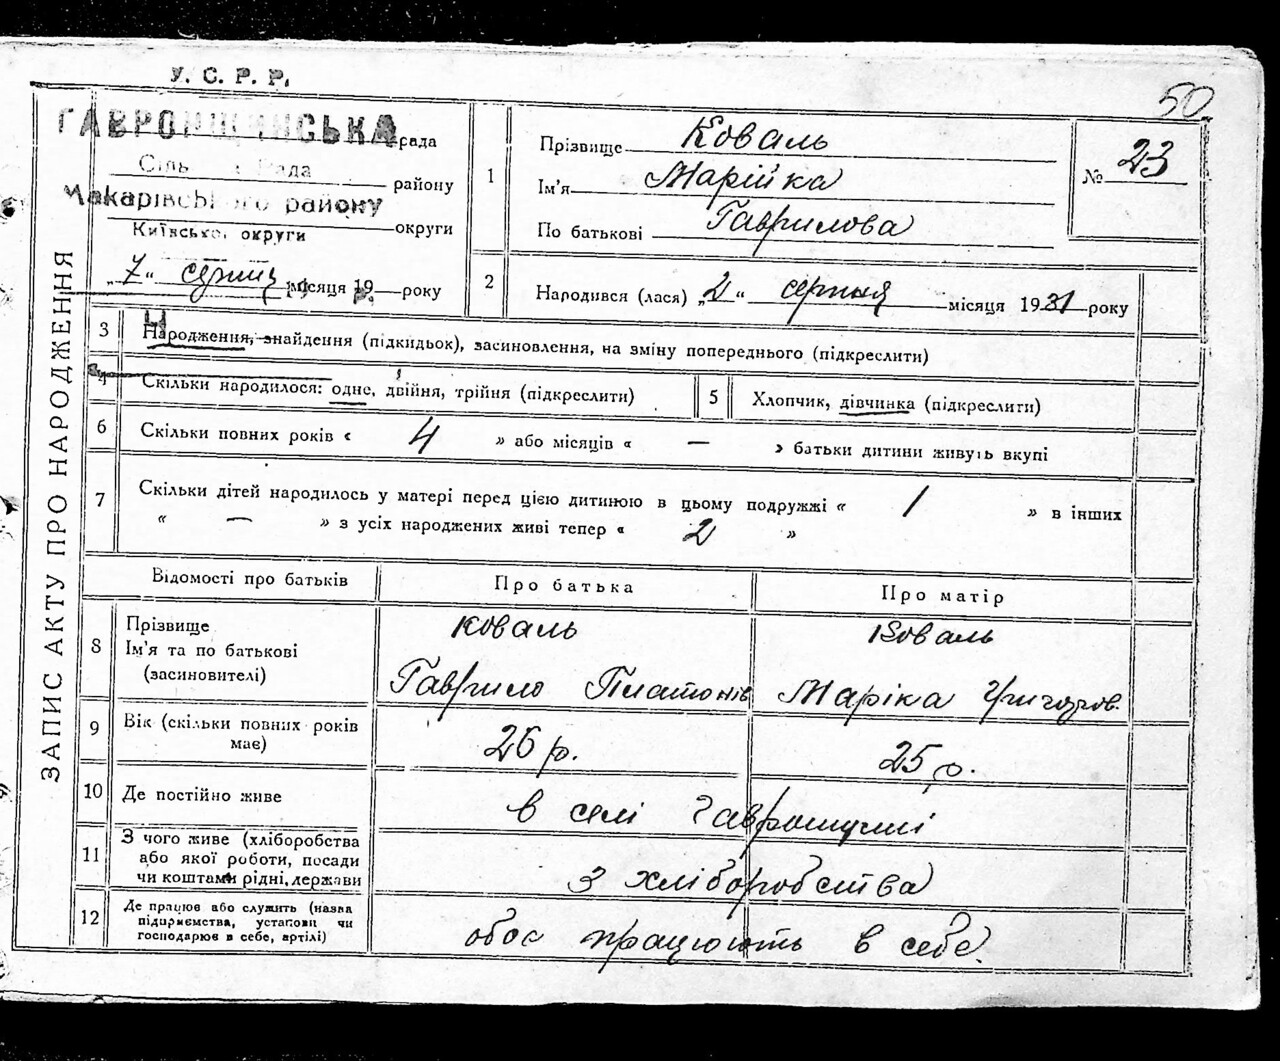 У. С. Р. Р.
50
ГАВРОНЩИНСЬКА рада
Сіль Рада
району
Макарівського району
округи
Київської округи
„7" серпня місяця 19 р. року
1
Прізвище Коваль
Ім'я Марійка
По батькові Гаврилова
№ 23
2
Народився (лася) „2" серпня місяця 1931 року
ЗАПИС АКТУ ПРО НАРОДЖЕННЯ
3 Народження, знайдення (підкидьок), засиновлення, на зміну попереднього (підкреслити)
4 Скільки народилося: одне, двійня, трійня (підкреслити)
5 Хлопчик, дівчинка (підкреслити)
6 Скільки повних років « 4 » або місяців « — » батьки дитини живуть вкупі
7 Скільки дітей народилось у матері перед цією дитиною в цьому подружжі « 1 » в інших
« — » з усіх народжених живі тепер « 2 »
Відомості про батьків Про батька Про матір
8 Прізвище
Ім'я та по батькові
(засиновителі)
Коваль
Гаврило Платонів
Коваль
Маріка Григоров.
9 Вік (скільки повних років
має)
26 р. 25 р.
10 Де постійно живе в селі Гавронщині
11 З чого живе (хліборобства
або якої роботи, посади
чи коштами рідні, держави
З хліборобства
12 Де працює або служить (назва
підприємства, установи чи
господарює в себе, артілі)
обоє працюють в себе.